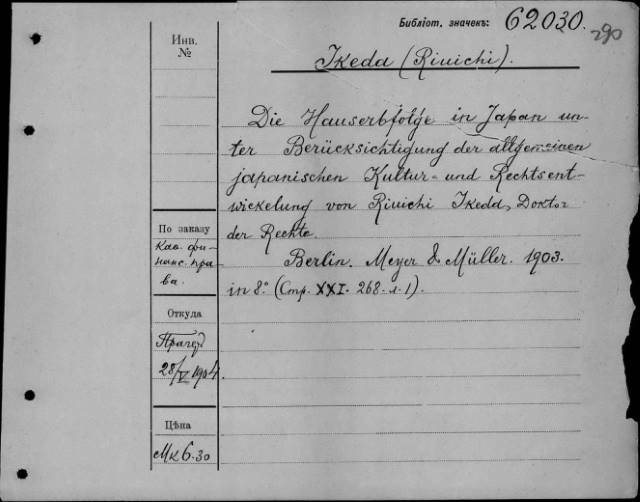 Библіот. значекъ: 62030.
290
Инв.
№
Ikeda (Riuichi).
Die Hauserbfolge in Japan un-
ter Berücksichtigung der allgemeinen
japanischen Kultur- und Rechtsent-
wickelung von Riuichi Ikeda, Doktor
der Rechte.
Berlin. Meyer & Müller. 1903.
in 8° (Стр. XXI. 268. л. 1).
По заказу
Каб. фи-
нанс. пра-
ва.
Откуда
Прагер
28/V 1904.
Цѣна
Мк 6.30